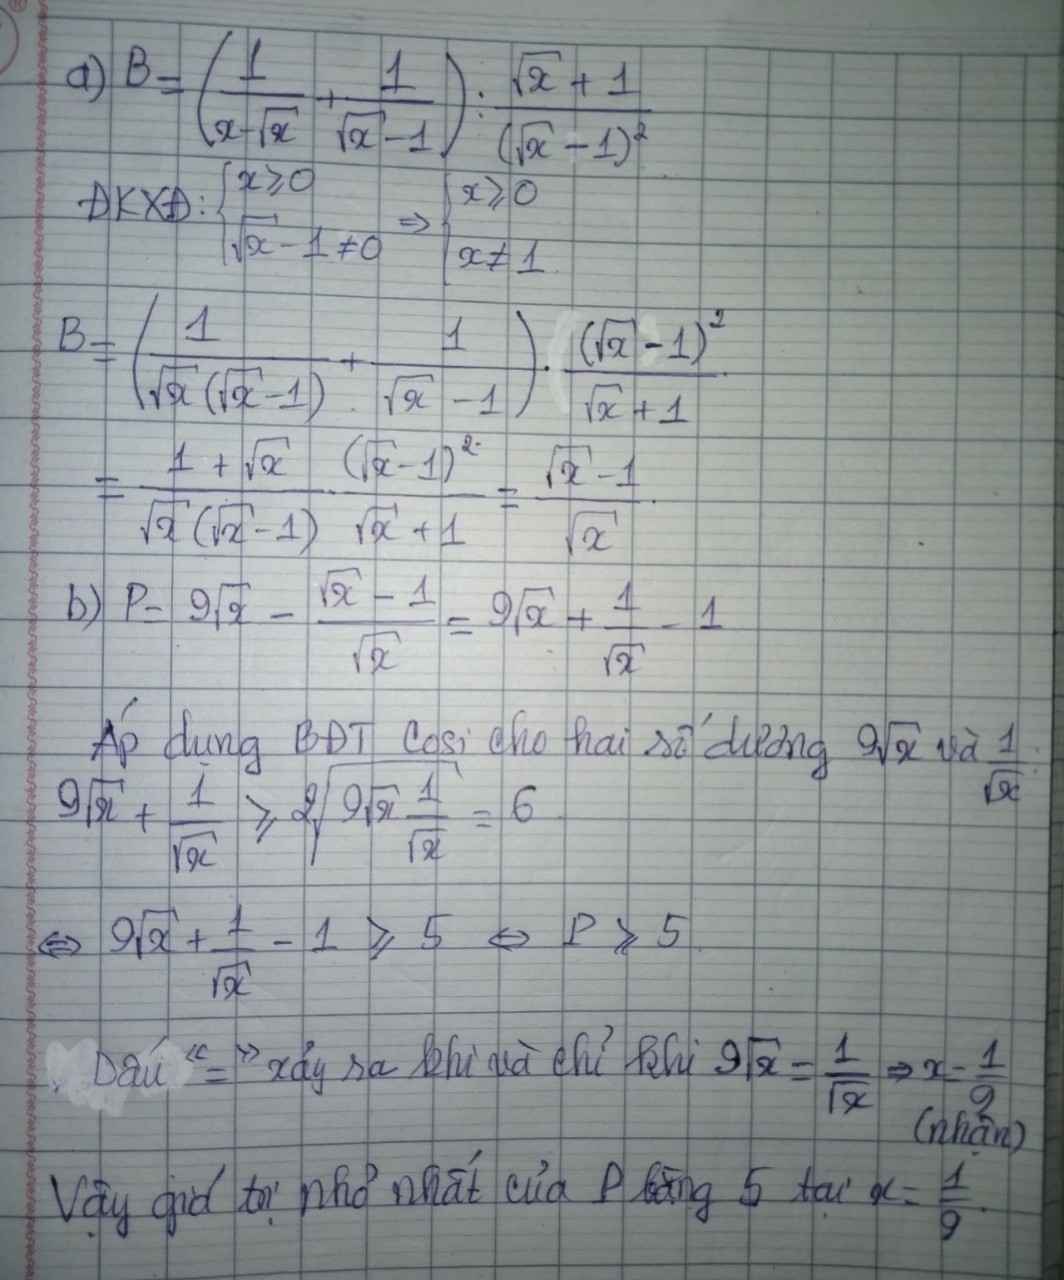 a) B = (1/(x-√x) + 1/(√x-1)) : (√x + 1)/(√x - 1)²
ĐKXĐ: { x ≥ 0 ; √x - 1 ≠ 0 ⇒ { x ≥ 0 ; x ≠ 1
B = (1/(√x(√x-1)) + 1/(√x - 1)) · (√x - 1)²/(√x + 1)
= (1 + √x)/(√x(√x-1)) · (√x-1)²/(√x + 1) = (√x - 1)/√x
b) P = 9√x - (√x - 1)/√x = 9√x + 1/√x - 1
Áp dụng BĐT Cosi cho hai số dương 9√x và 1/√x
9√x + 1/√x ≥ 2√(9√x 1/√x) = 6
⇔ 9√x + 1/√x - 1 ≥ 5 ⇔ P ≥ 5
Dấu "=" xảy ra khi và chỉ khi 9√x = 1/√x ⇒ x = 1/9
(nhận)
Vậy giá trị nhỏ nhất của P bằng 5 tại x = 1/9.